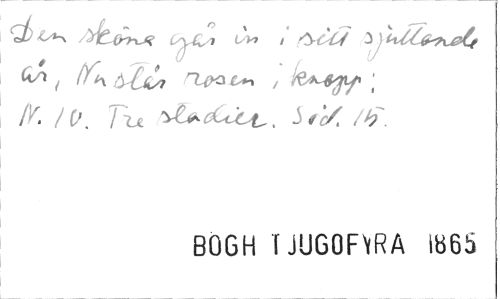 Den sköna går in i sitt sjuttonde
år, Nu står rosen i knopp:
N. 10. Tre stadier. Sid. 15.
BÖGH TJUGOFYRA 1865